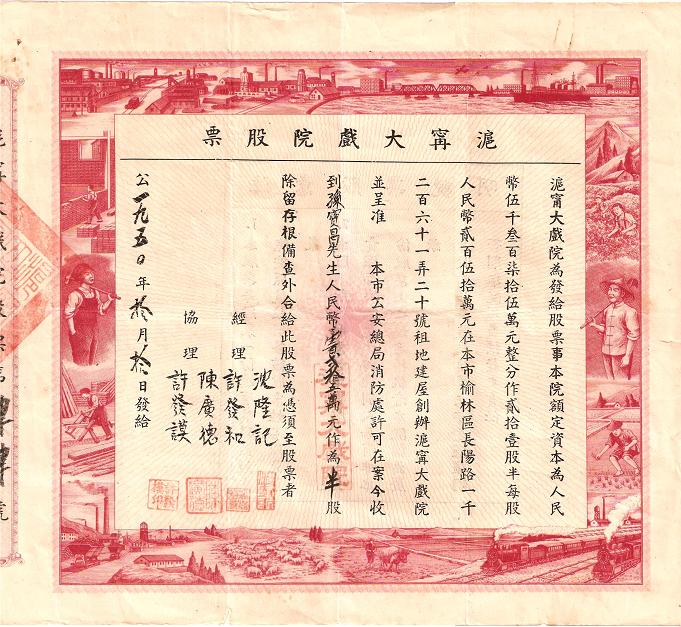 滬甯大戲院股票
滬甯大戲院為發給股票事本院額定資本為人民
幣伍千叁百柒拾伍萬元整分作貳拾壹股半每股
人民幣貳百伍拾萬元在本市榆林區長陽路一千
二百六十一弄二十號租地建屋創辦滬甯大戲院
並呈准 本市公安總局消防處許可在案今收
到孫寶昌先生人民幣壹百貳拾五萬元作為半股
除留存根備查外合給此股票為憑須至股票者
經理 沈隆記
許發和
協理 陳廣德
許發謨
公一九五〇年拾月拾日發給
滬甯大戲院股票第
號